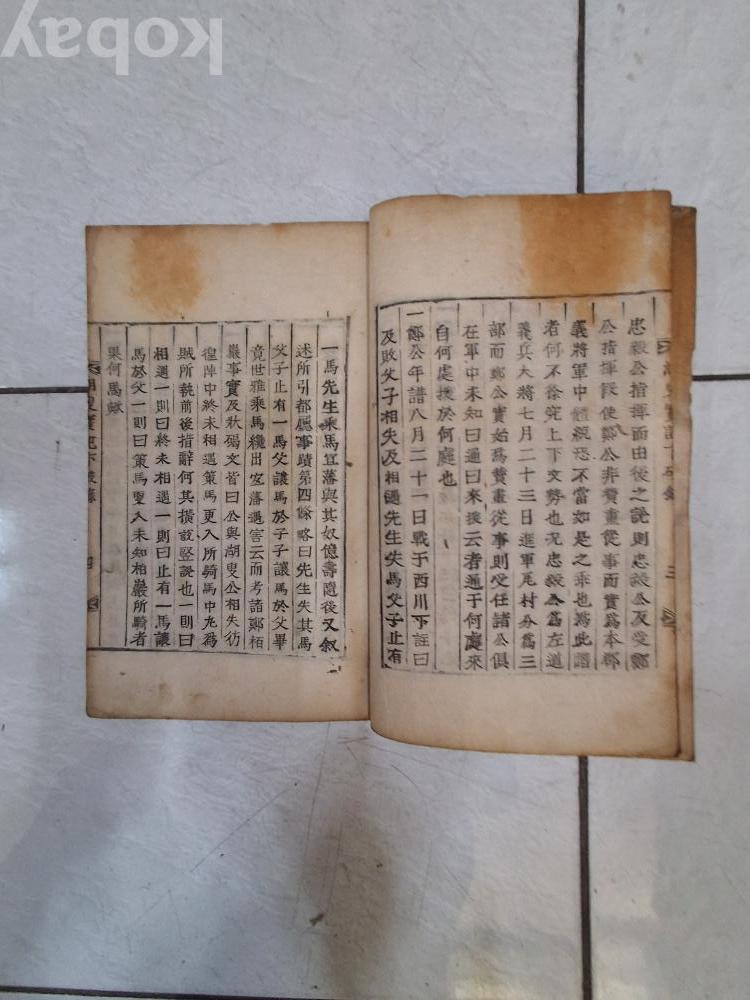 kobay
忠毅公指揮而由後之說則忠毅公反受鄭
公指揮設使鄭公非贊畫從事而實爲本郡
義將軍中體統恐不當如是之乖也爲此譜
者何不徐究上下文勢也况忠毅公爲左道
義兵大將七月二十三日進軍尾村分爲三
部而鄭公實始爲贊畫從事則受任諸公俱
在軍中未知曰通曰來援云者通于何處來
自何處援於何處也
一鄭公年譜八月二十一日戰于西川下註曰
及敗父子相失及相遇先生失馬父子止有
一馬先生乘馬宜藩與其奴億壽隨後又叙
述所引都廳事蹟第四條略曰先生失其馬
父子止有一馬父讓馬於子子讓馬於父畢
竟世雅乘馬纔出宜藩遇害云而考諸鄭栢
巖事實及狀碣文皆曰公與湖叟公相失彷
徨陣中終未相遇策馬更入所騎馬中丸爲
賊所執前後措辭何其橫說竪說也一則曰
相遇一則曰終未相遇一則曰止有一馬讓
馬於父一則曰策馬更入未知相巖所騎者
果何馬歟
湖叟實記下